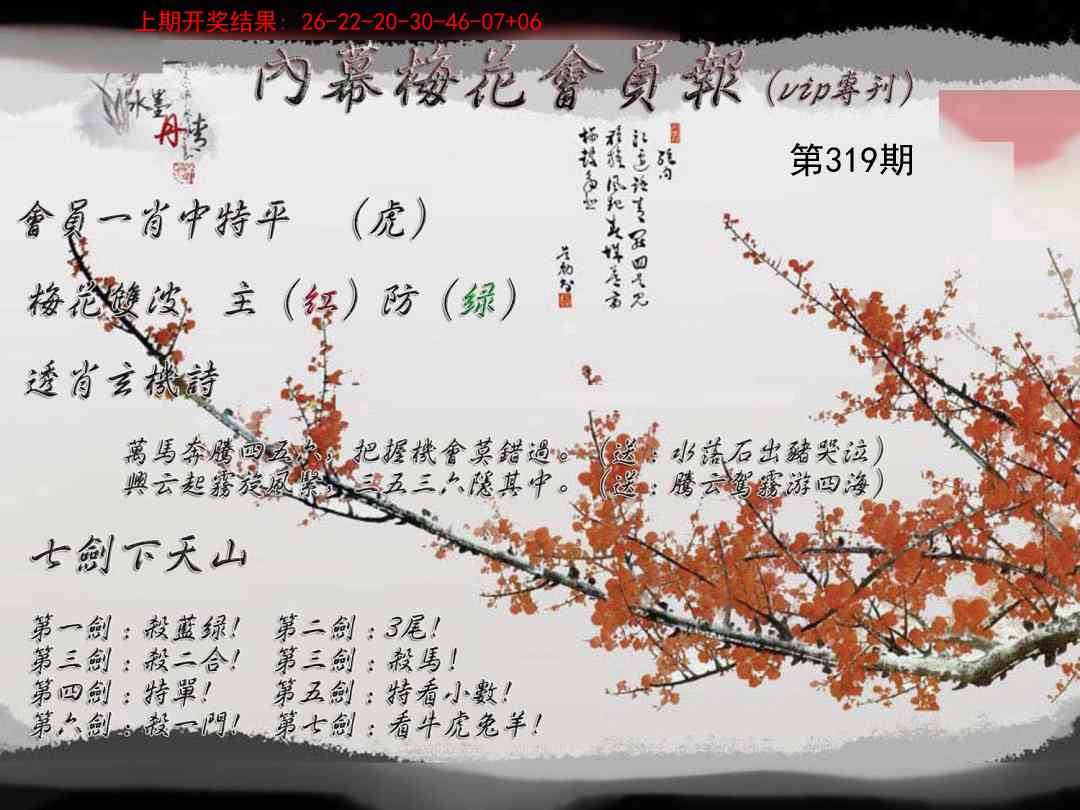 上期开奖结果: 26-22-20-30-46-07+06
內幕梅花會員報(vip專刊)
水墨
丹青
第319期
會員一肖中特平 (虎)
梅花雙波 主(红)防(绿)
透肖玄機詩
萬馬奔騰四五六，把握機會莫錯過。(送：水落石出豬哭泣)
興云起霧旋風緊，三五三六隱其中。(送：騰云駕霧游四海)
七劍下天山
第一劍：殺藍绿! 第二劍：3尾!
第三劍：殺二合! 第三劍：殺馬!
第四劍：特單! 第五劍：特看小數!
第六劍：殺一門! 第七劍：看牛虎兔羊!